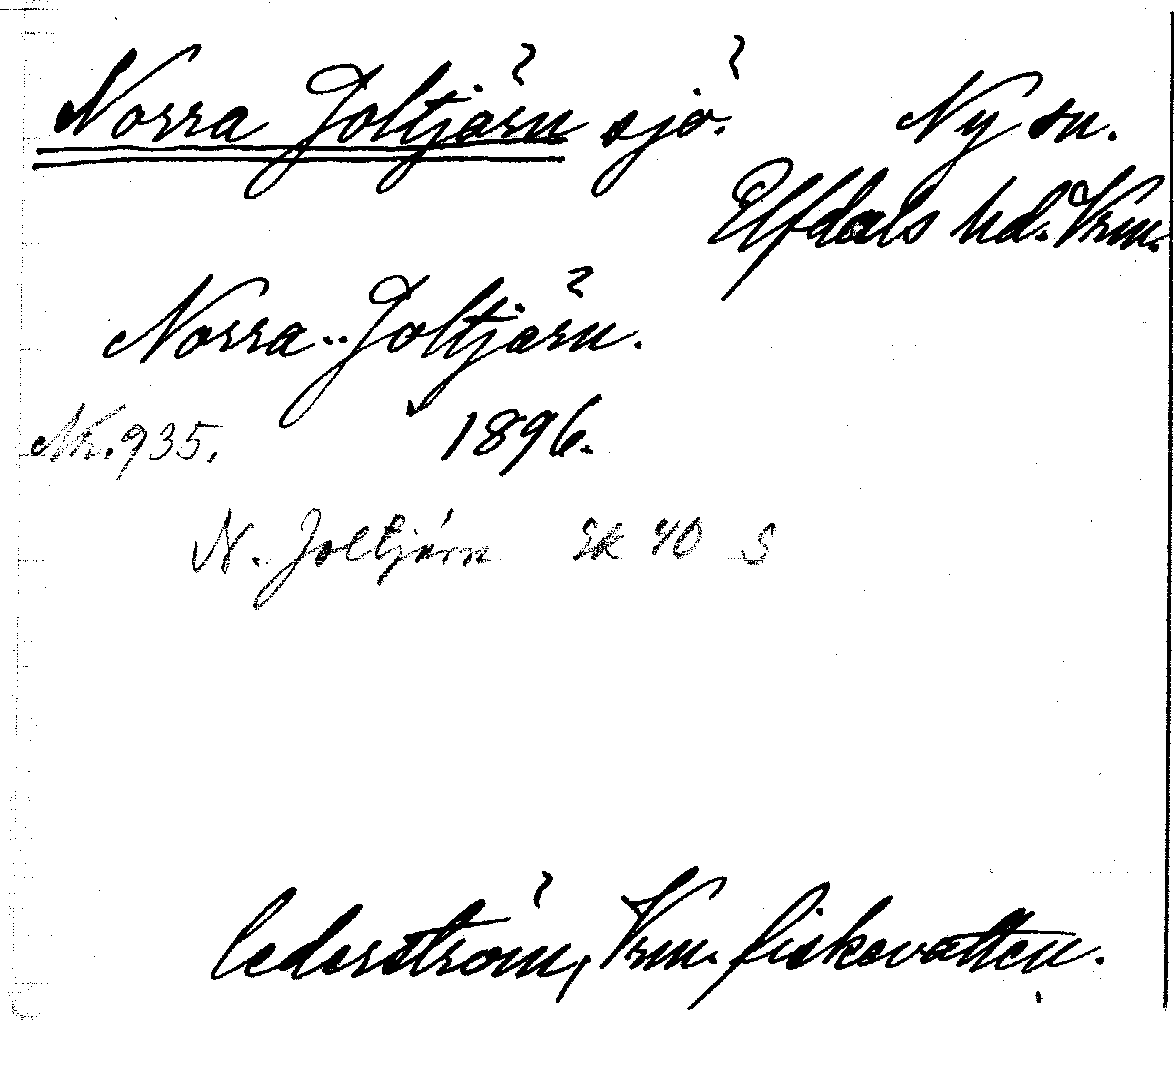 Norra Joltjärn sjö. Ny sn.
Elfdals hd. Vrm.
Norra-Joltjärn.
Nr. 935. 1896.
N. Joltjärn Ek 40 S
Cederström, Vrm. fiskevatten.